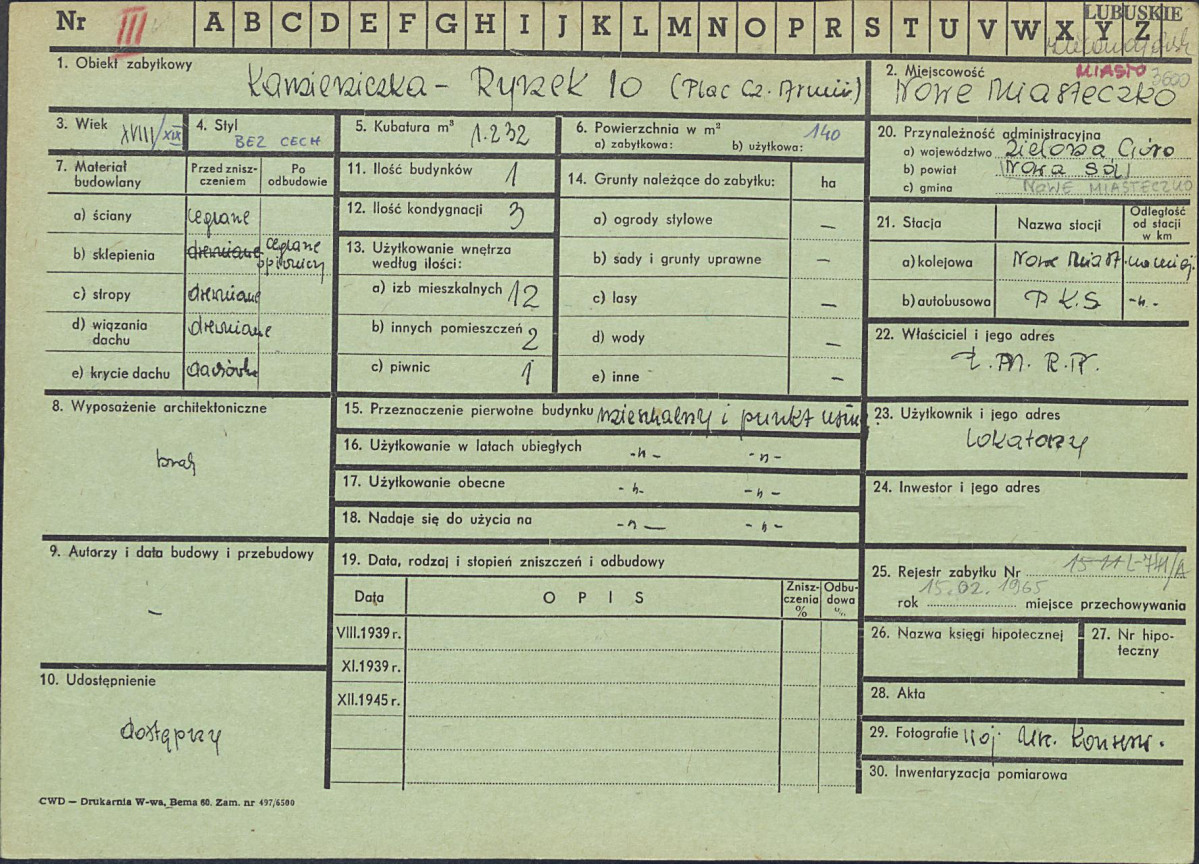 Nr III A B C D E F G H I J K L M N O P R S T U V W X Y Z
LUBUSKIE
1. Obiekt zabytkowy
Kamieniczka – Rynek 10 (Plac Cz. Armii)
2. Miejscowość MIASTO 3600
Nowe Miasteczko
3. Wiek XVIII/XIX
4. Styl BEZ CECH
5. Kubatura m³ 1.232
6. Powierzchnia w m² 140
a) zabytkowa: b) użytkowa:
7. Materiał budowlany
Przed zniszczeniem
Po odbudowie
a) ściany ceglane
b) sklepienia drewniane ceglane piwnicy
c) stropy drewniane
d) wiązania dachu drewniane
e) krycie dachu dachówka
8. Wyposażenie architektoniczne
brak
9. Autorzy i data budowy i przebudowy
–
10. Udostępnienie
dostępny
11. Ilość budynków 1
12. Ilość kondygnacji 3
13. Użytkowanie wnętrza według ilości:
a) izb mieszkalnych 12
b) innych pomieszczeń 2
c) piwnic 1
14. Grunty należące do zabytku: ha
a) ogrody stylowe –
b) sady i grunty uprawne –
c) lasy –
d) wody –
e) inne –
15. Przeznaczenie pierwotne budynku mieszkalny i punkt usług
16. Użytkowanie w latach ubiegłych -"- -"-
17. Użytkowanie obecne -"- -"-
18. Nadaje się do użycia na -"- -"-
19. Data, rodzaj i stopień zniszczeń i odbudowy
Data
O P I S
Zniszczenia %
Odbudowa %
VIII.1939 r.
XI.1939 r.
XII.1945 r.
20. Przynależność administracyjna
a) województwo Zielona Góra
b) powiat Nowa Sól
c) gmina NOWE MIASTECZKO
21. Stacja
Nazwa stacji
Odległość od stacji w km
a) kolejowa Nowe Miast. na miej.
b) autobusowa P K S -"-
22. Właściciel i jego adres
Z. M. R. N.
23. Użytkownik i jego adres
Lokatorzy
24. Inwestor i jego adres
25. Rejestr zabytku Nr
15.02.1965
rok miejsce przechowywania
26. Nazwa księgi hipotecznej
27. Nr hipoteczny
28. Akta
29. Fotografie Woj. Urz. Konserw.
30. Inwentaryzacja pomiarowa
CWD — Drukarnia W-wa, Bema 60. Zam. nr 497/6500